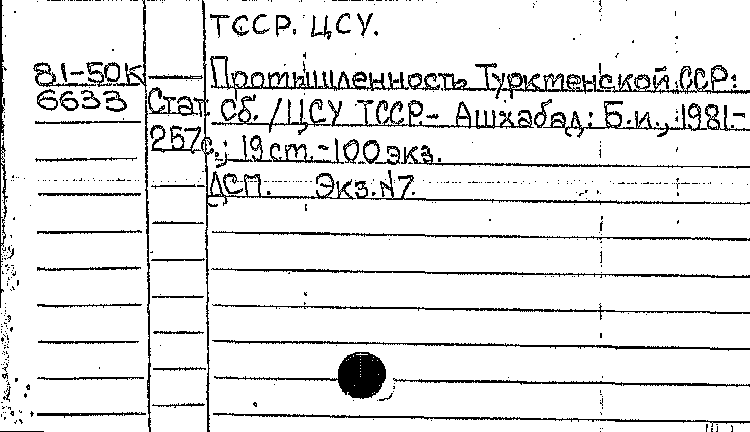 ТССР. ЦСУ.
81-50К Промышленность Туркменской ССР:
6633 Стат. сб. /ЦСУ ТССР.- Ашхабад: Б.и., 1981.-
257с.; 19 ст.-100 экз.
ДСП. Экз.N7.